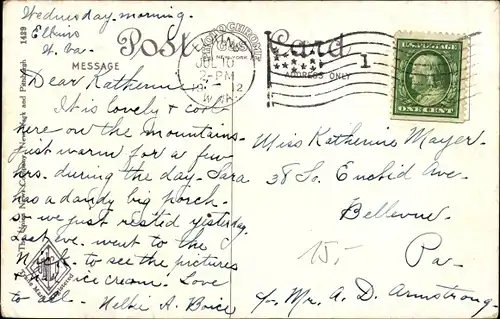 Wednesday morning.
Elkins
W. Va.
Post Card
MESSAGE
ADDRESS ONLY
PHOTOCHROME
NEW YORK
JUL 10
2-PM
1912
W.VA.
1
U.S. POSTAGE
ONE CENT
1429
Dear Katherine:-
It is lovely & cool
here on the mountains.
Just warm for a few
hrs. during the day. Sara
has a dandy big porch
so we just rested yesterday.
Last eve. went to the
Nick. to see the pictures
& ice cream. Love
to all. Nellie A. Boice
Miss Katherine Mayer.
38 So. Euclid Ave.
Bellevue,
15.-
Pa-
c/o Mr. A. D. Armstrong.
Trade Mark Registered